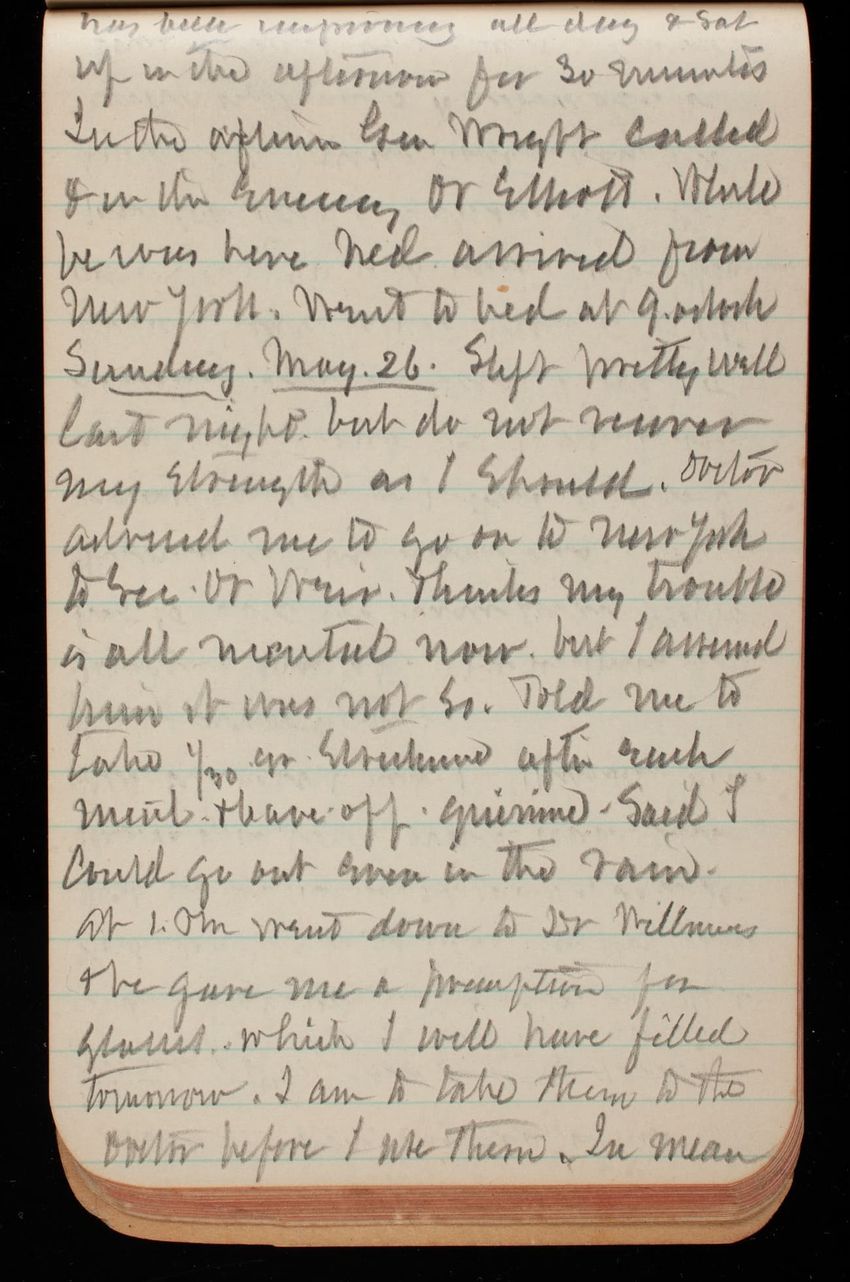 has been improving all day & sat
up in the afternoon for 30 minutes
In the afternn Gen Wright called
& in the Evening Dr Elliott. While
he was here Ned arrived from
New York. Went to bed at 9. oclock
Sunday. May. 26. Slept pretty well
last night. but do not recover
my strength as I should. Doctor
advised me to go on to New York
to see Dr Weir. Thinks my trouble
is all mental now. but I assured
him it was not so. Told me to
take 1/30 gr Strichnine after each
meal. & leave off quinine. Said I
could go out even in the rain.
at 1. Pm went down to Dr Willmers
& he gave me a prescription for
glasses. which I will have filled
tomorrow. I am to take them to the
Doctor before I use them. In mean